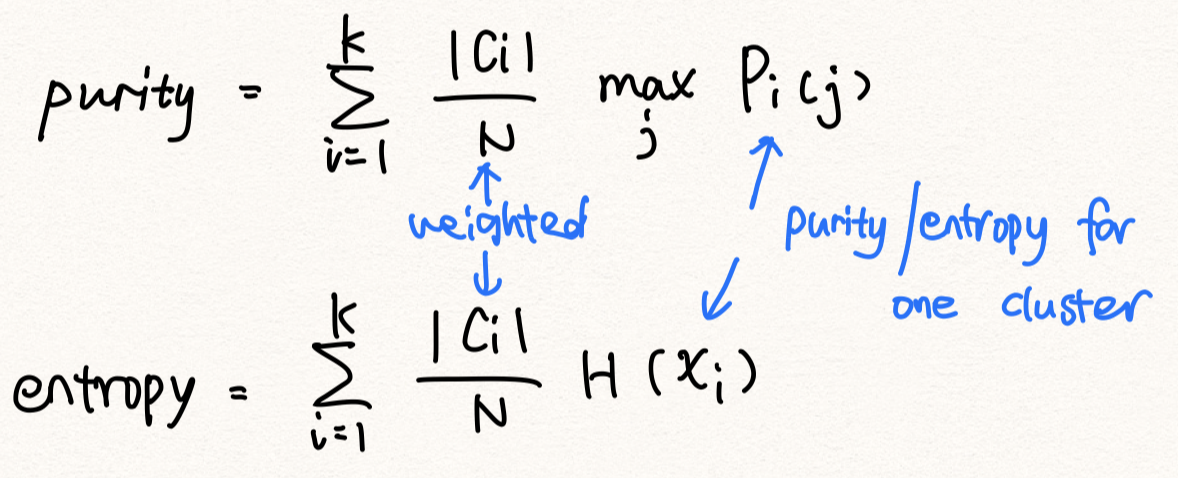 purity = \sum_{i=1}^{k} \frac{|Ci|}{N} \max_{j} Pi(j)
weighted
purity/entropy for
one cluster
entropy = \sum_{i=1}^{k} \frac{|Ci|}{N} H(xi)